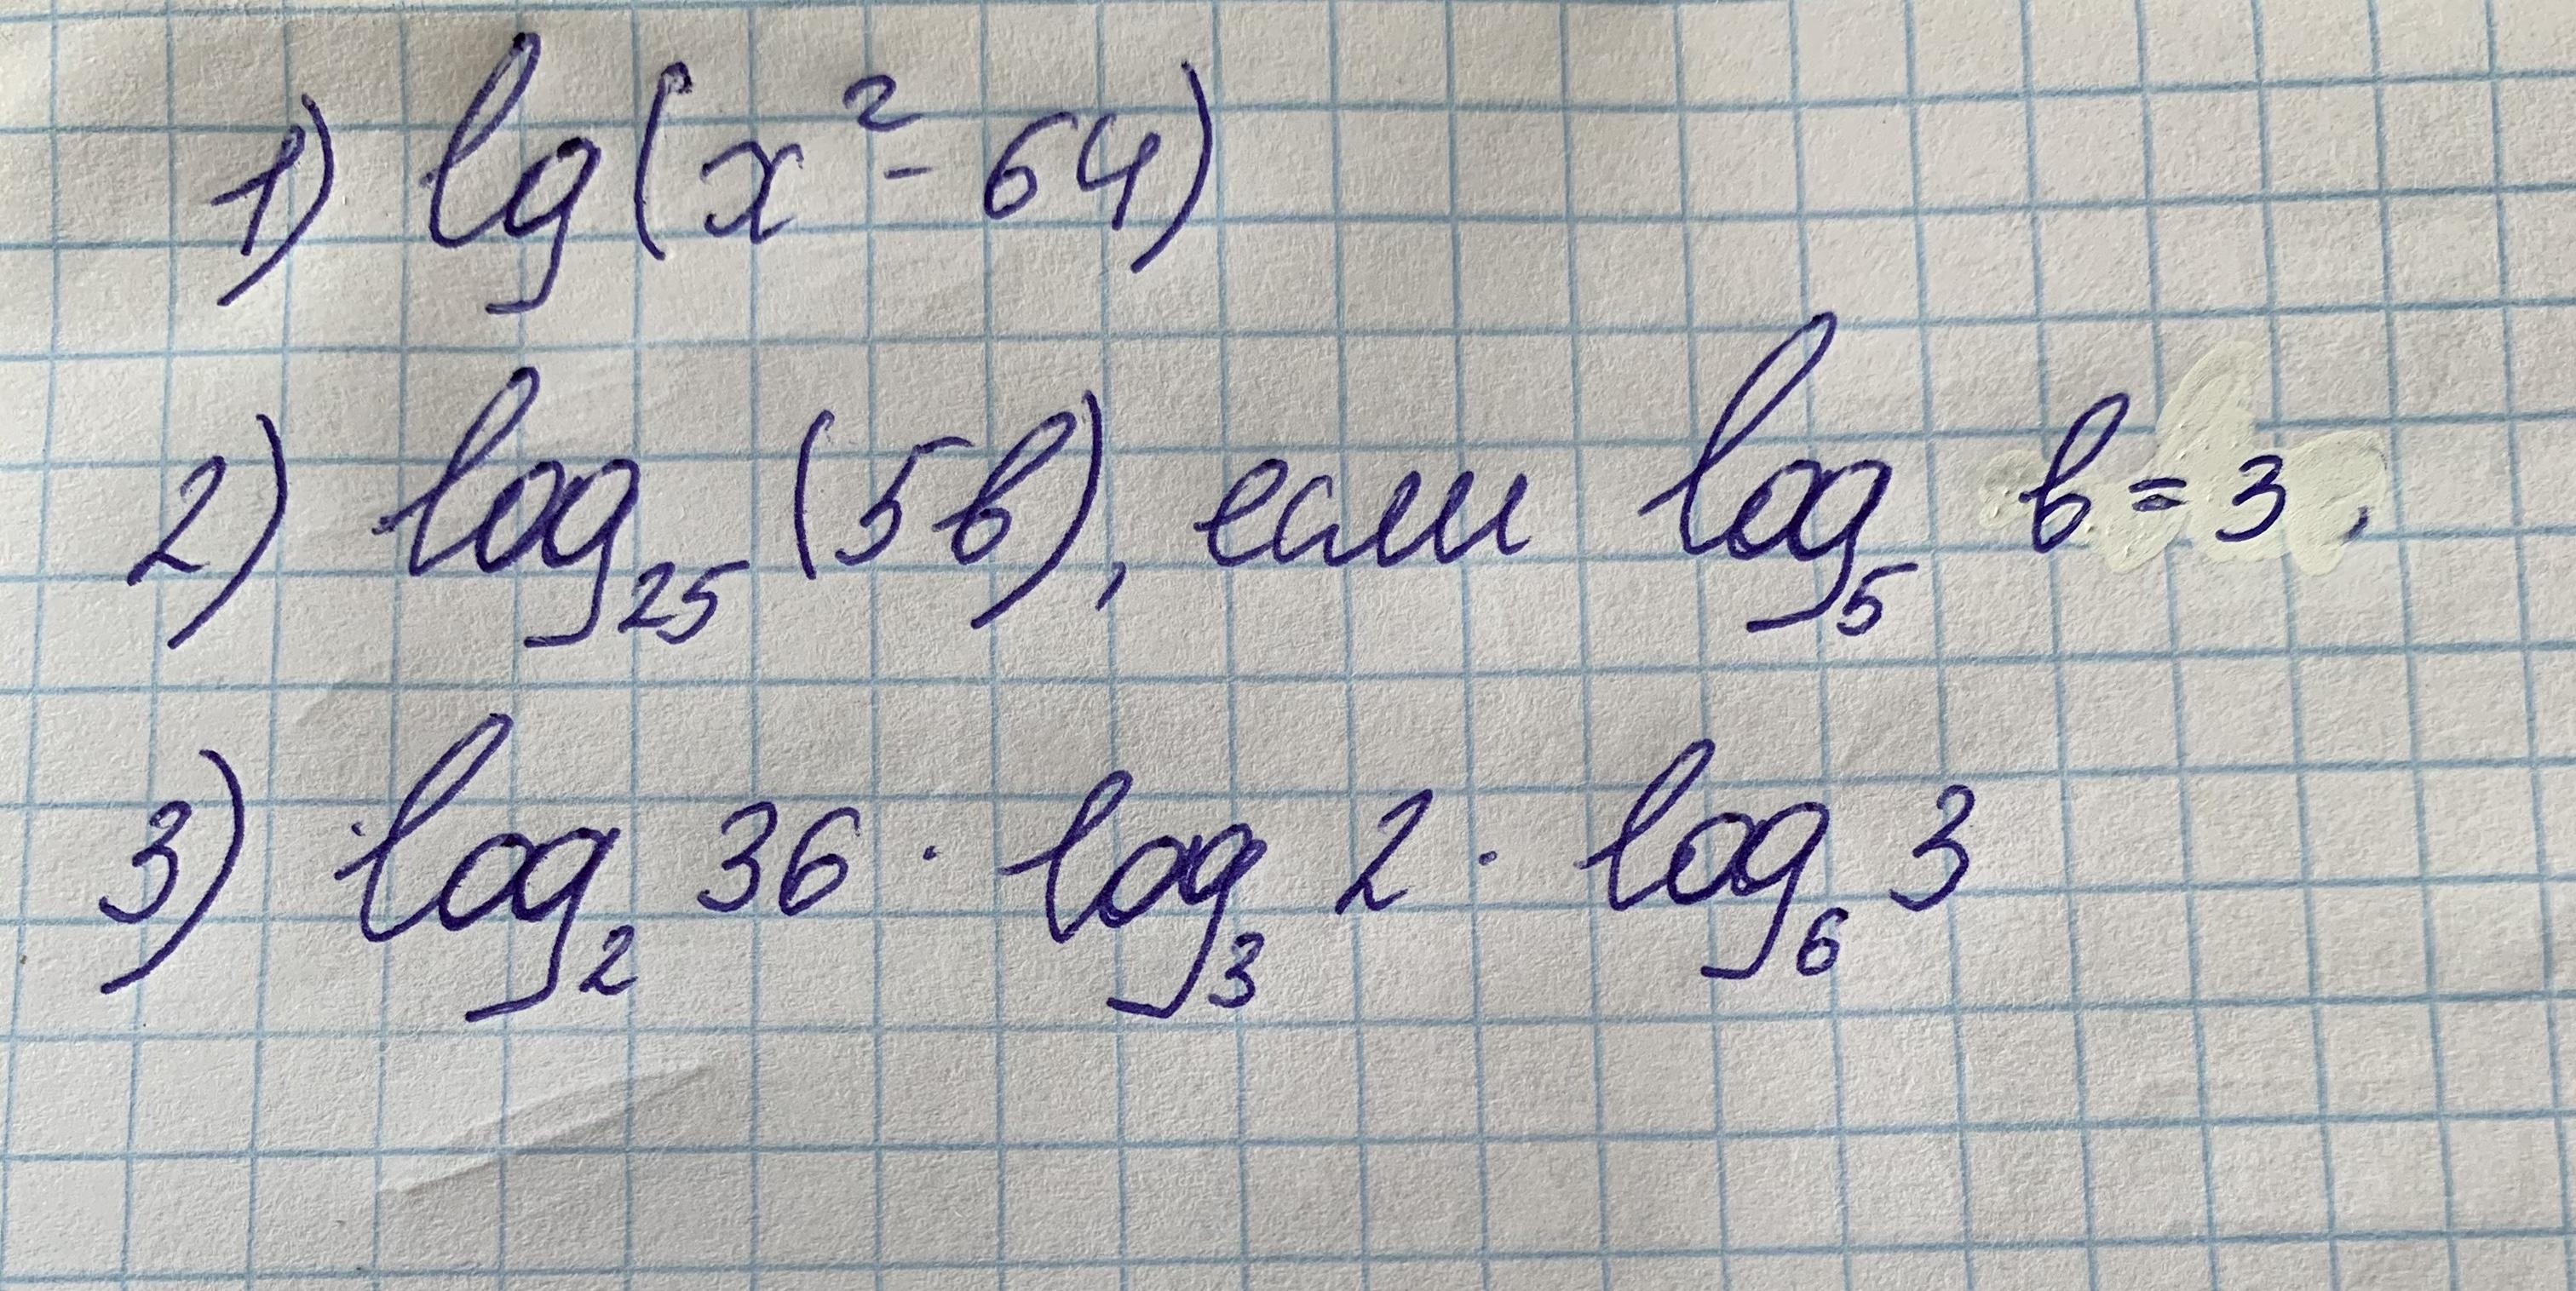 1) lg(x²- 64)
2) log₂₅ (5b), если log₅ b = 3,
3) log₂ 36 · log₃ 2 · log₆ 3